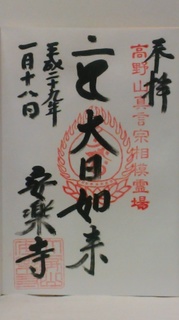 奉拝
高野山真言宗相模霊場
大日如来
平成二十九年
一月十八日
安楽寺